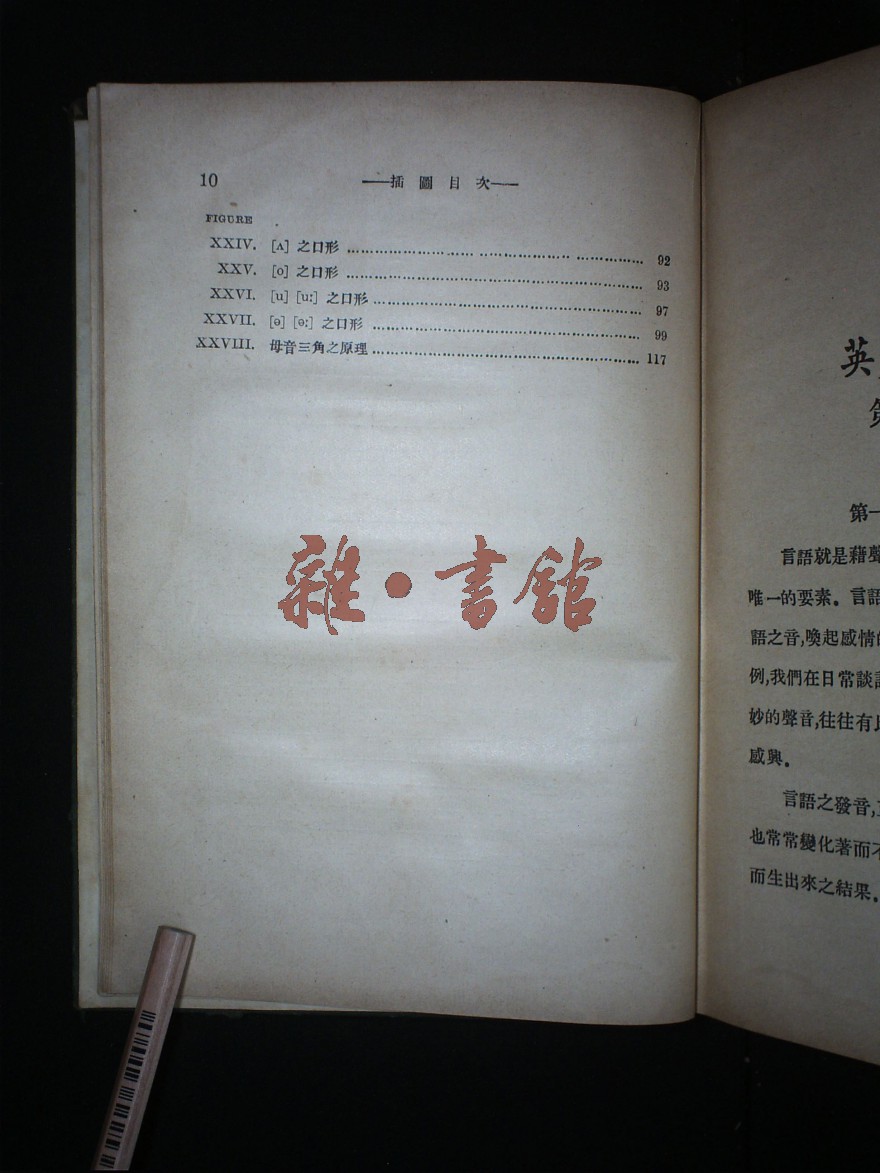 10 ——插圖目次——
FIGURE
XXIV. [ʌ] 之口形 ........................ 92
XXV. [o] 之口形 ........................ 93
XXVI. [u] [uː] 之口形 ........................ 97
XXVII. [ə] [əː] 之口形 ........................ 99
XXVIII. 母音三角之原理 ........................ 117
雜·書館
英
第
第一
言語就是藉聲
唯一的要素。言語
語之音,喚起感情的
例,我們在日常談話
妙的聲音,往往有以
感興。
言語之發音,
也常常變化著而不
而生出來之結果。